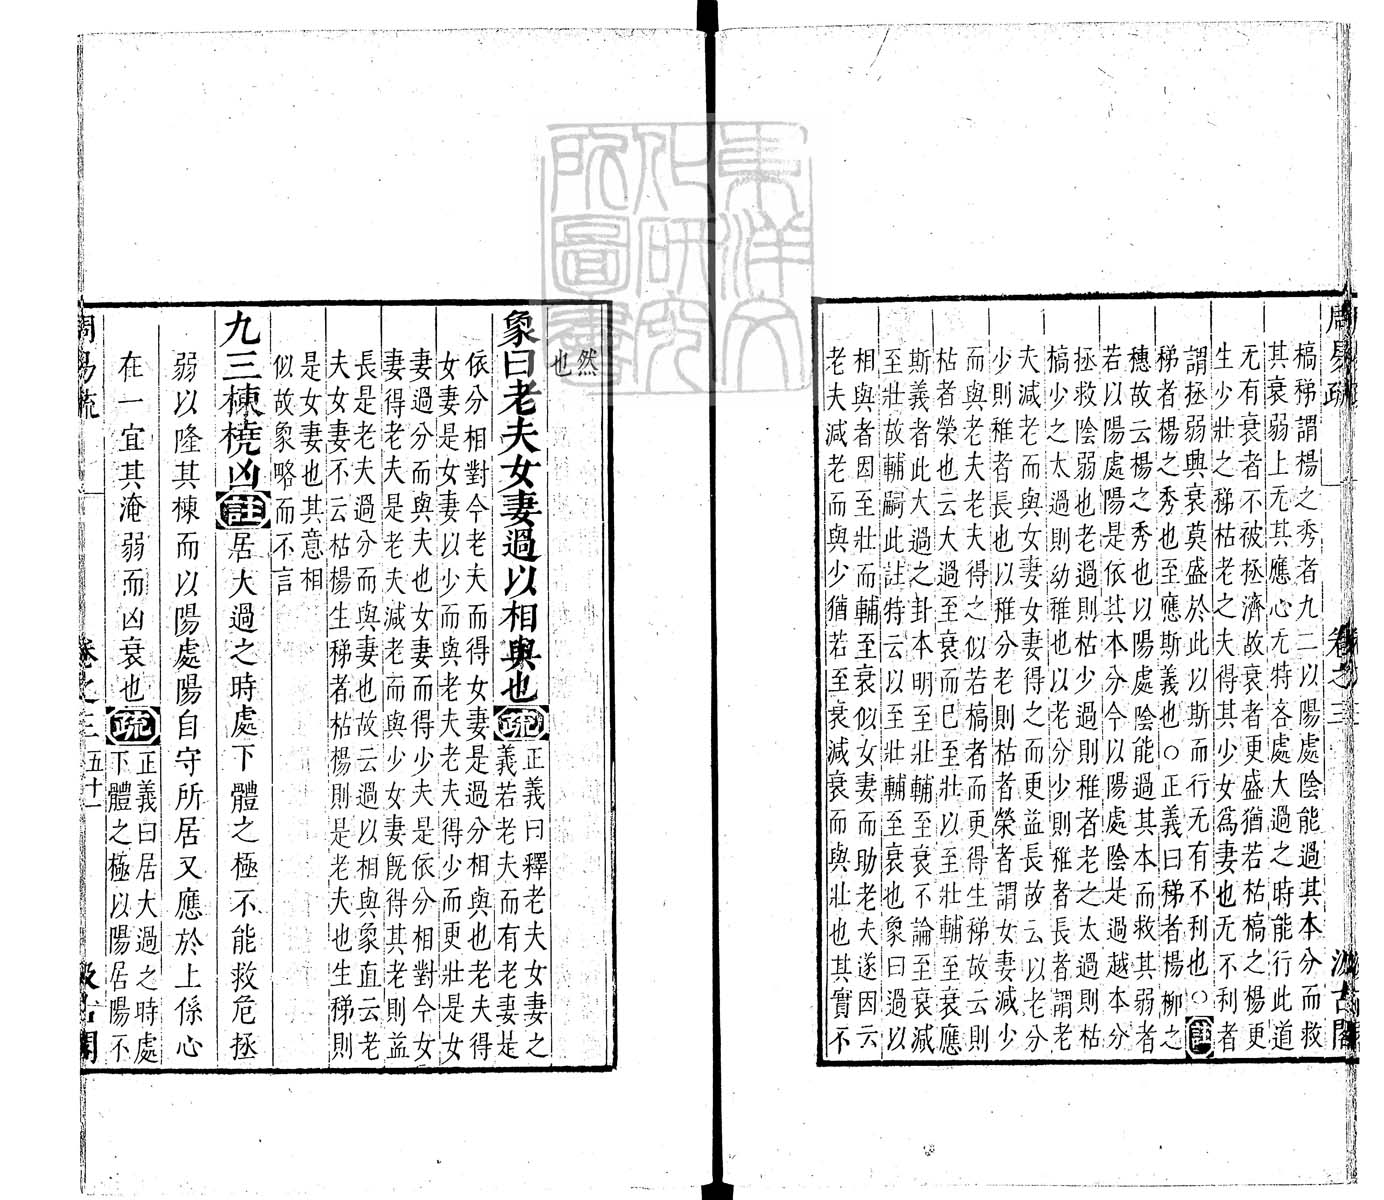 周易疏 卷之三 汲古閣
槁稊謂楊之秀者九二以陽處陰能過其本分而救
其衰弱上无其應心无特吝處大過之時能行此道
无有衰者不被拯濟故衰者更盛猶若枯槁之楊更
生少壯之稊枯老之夫得其少女爲妻也无不利者
謂拯弱興衰莫盛於此以斯而行无有不利也○註
稊者楊之秀也至應斯義也○正義曰稊者楊柳之
穗故云楊之秀也以陽處陰能過其本而救其弱者
若以陽處陽是依其本分今以陽處陰是過越本分
拯救陰弱也老過則枯少過則稚者老之太過則枯
槁少之太過則幼稚也以老分少則稚者長者謂老
夫減老而與女妻女妻得之而更益長故云以老分
少則稚者長也以稚分老則枯者榮者謂女妻減少
而與老夫老夫得之似若槁者而更得生稊故云則
枯者榮也云大過至衰而巳至壯以至壯輔至衰應
斯義者此大過之卦本明至壯輔至衰不論至衰減
至壯故輔嗣此註特云以至壯輔至衰也象曰過以
相與者因至壯而輔至衰似女妻而助老夫遂因云
老夫減老而與少猶若至衰減衰而與壯也其實不
然
也
象曰老夫女妻過以相與也疏
正義曰釋老夫女妻之
義若老夫而有老妻是
依分相對今老夫而得女妻是過分相與也老夫得
女妻是女妻以少而與老夫老夫得少而更壯是女
妻過分而與夫也女妻而得少夫是依分相對今女
妻得老夫是老夫減老而與少女妻既得其老則益
長是老夫過分而與妻也故云過以相與象直云老
夫女妻不云枯楊生稊者枯楊則是老夫也生稊則
是女妻也其意相
似故象略而不言
九三棟橈凶註居大過之時處下體之極不能救危拯
弱以隆其棟而以陽處陽自守所居又應於上係心
在一宜其淹弱而凶衰也疏
正義曰居大過之時處
下體之極以陽居陽不
周易疏 卷之三 五十一 汲古閣
東洋文
化研究
所圖書